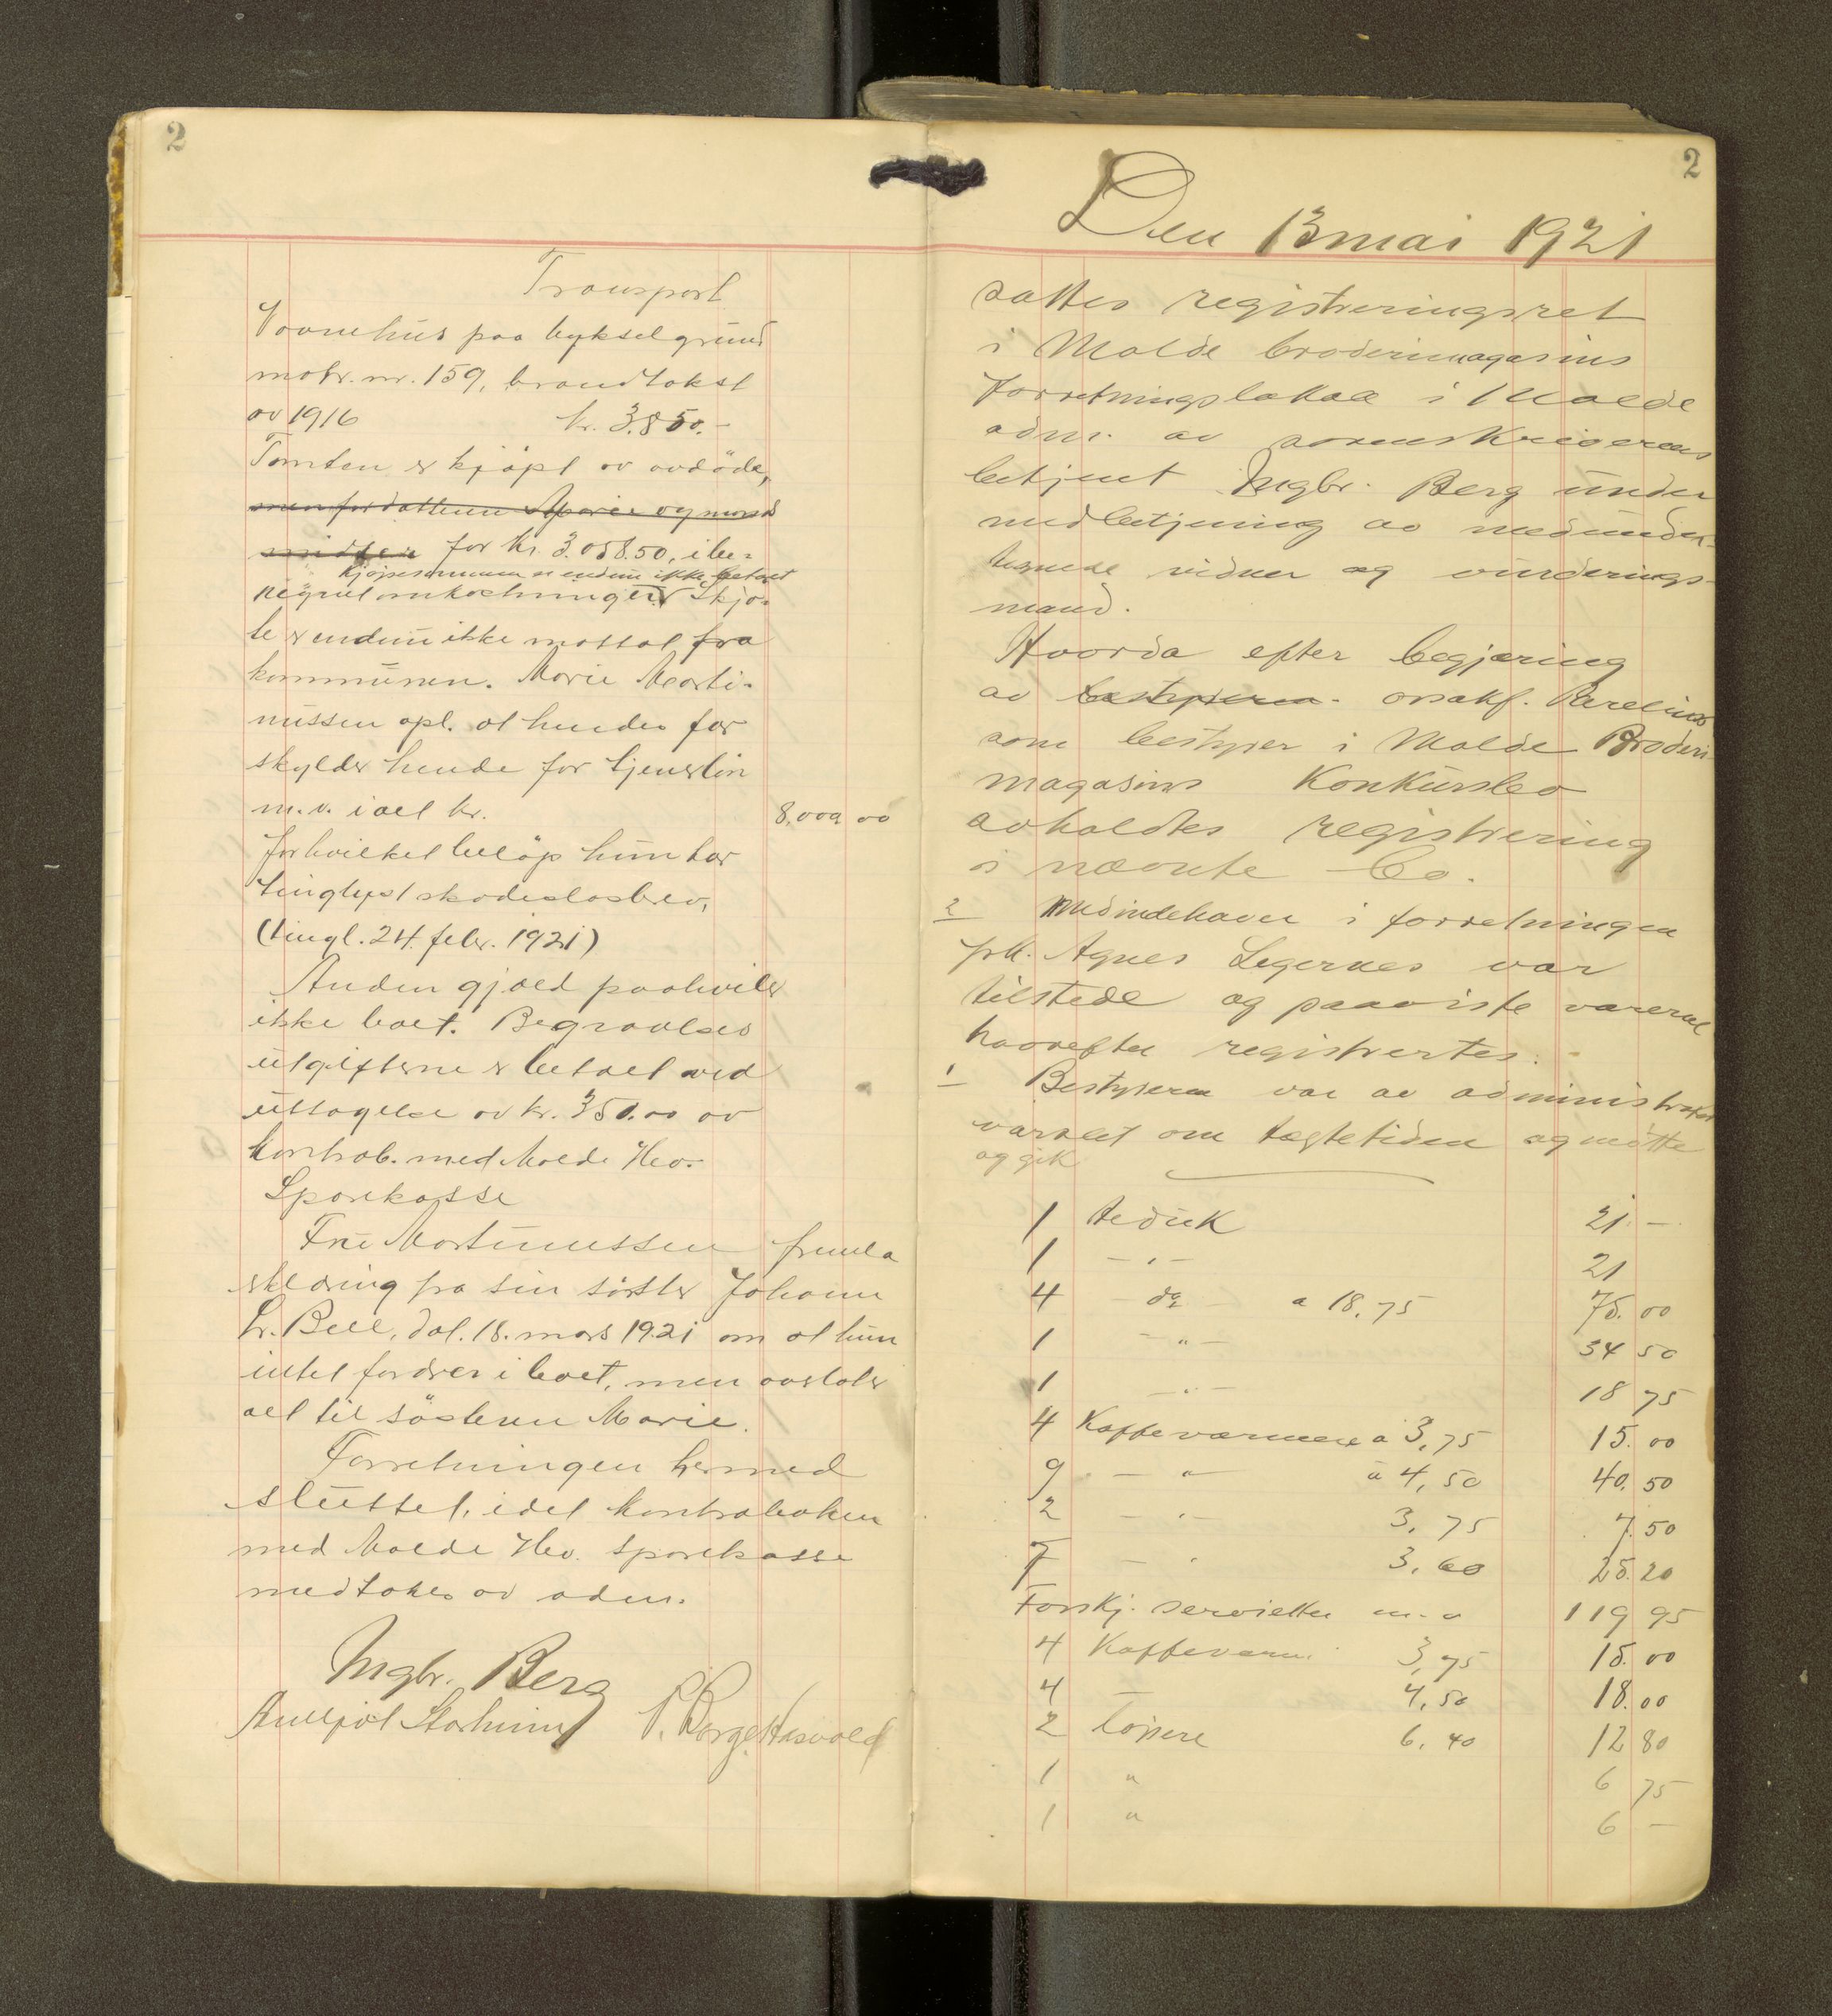 2
Transport
Vaanehus paa bykselgrund
matr. nr. 159, brandtakst
av 1916 kr. 3.850.-
Tomten er kjöpt av avdöde,
men for datteren Maries og mors
midler for kr. 3.058.50, ibe-
kjøpesummen er endnu ikke betalt
regnet omkostninger. Skjö-
te er endnu ikke mottat fra
kommunen. Marie Marti-
nussen opl. at hendes far
skylder hende for tjenerlön
m. v. i alt kr. 8.000 00
for hvilket belöp hun har
tinglyst skadeslösbrev,
(tingl. 24. febr. 1921)
Anden gjæld paahviler
ikke boet. Begravelses
utgifterne er betalt ved
uttagelse av kr. 350.00 av
kontrab. med Molde Hev.
Sparekasse
Frk. Martinussen fremla
erklæring fra sin söster Johanne
L. Bell, dat. 18. mars 1921 om at hun
intet fordrer i boet, men overlater
alt til søsteren Marie.
Forretningen hermed
sluttet, idet kontraboken
med Molde Hev. sparekasse
medtakes av adm.
Ingbr. Berg
P. Borge Hasvold
2
Den 13 mai 1921
sattes registreringsret
i Molde broderimagasins
forretningslokale i Molde
adm. av sorenskriverens
betjent Ingbr. Berg under
medbetjening av medunder-
tegnede vidner og vurderings-
mænd.
Hvorda efter begjæring
av bestyreren. o.r.sakf. Parelius
som bestyrer i Molde Broderi
magasins Konkursbo
avholdtes registrering
i nævnte bo.
2 Medindehaver i forretningen
frk. Agnes Legernes var
tilstede og paaviste varerne
hvorefter registrertes:
1 Bestyreren var av administrator
varslet om tægtetiden og møtte
og gik
1 teduk 21. -
1 - " - 21
4 - do - a 18,75 75.00
1 - " - 34 50
1 - " - 18 75
4 Kaffevarmere a 3,75 15.00
9 - " - a 4,50 40.50
2 - " - 3,75 7.50
7 - " 3.60 25.20
Forskj. servietter m. v 119 95
4 Kaffevarm. 3,75 15.00
4 - 4,50 18.00
2 Löpere 6,40 12 80
1 " 6 75
1 " 6 -